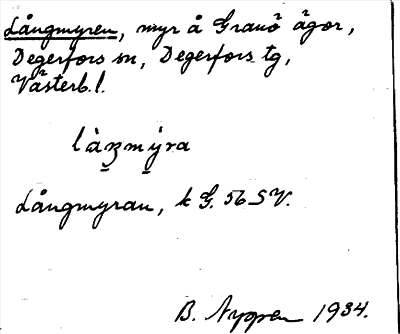 Långmyren, myr å Granö ägor,
Degerfors sn, Degerfors tg,
Västerb. l.
làŋmýra
Långmyran, k G. 56 SV.
B. Nygren 1934.